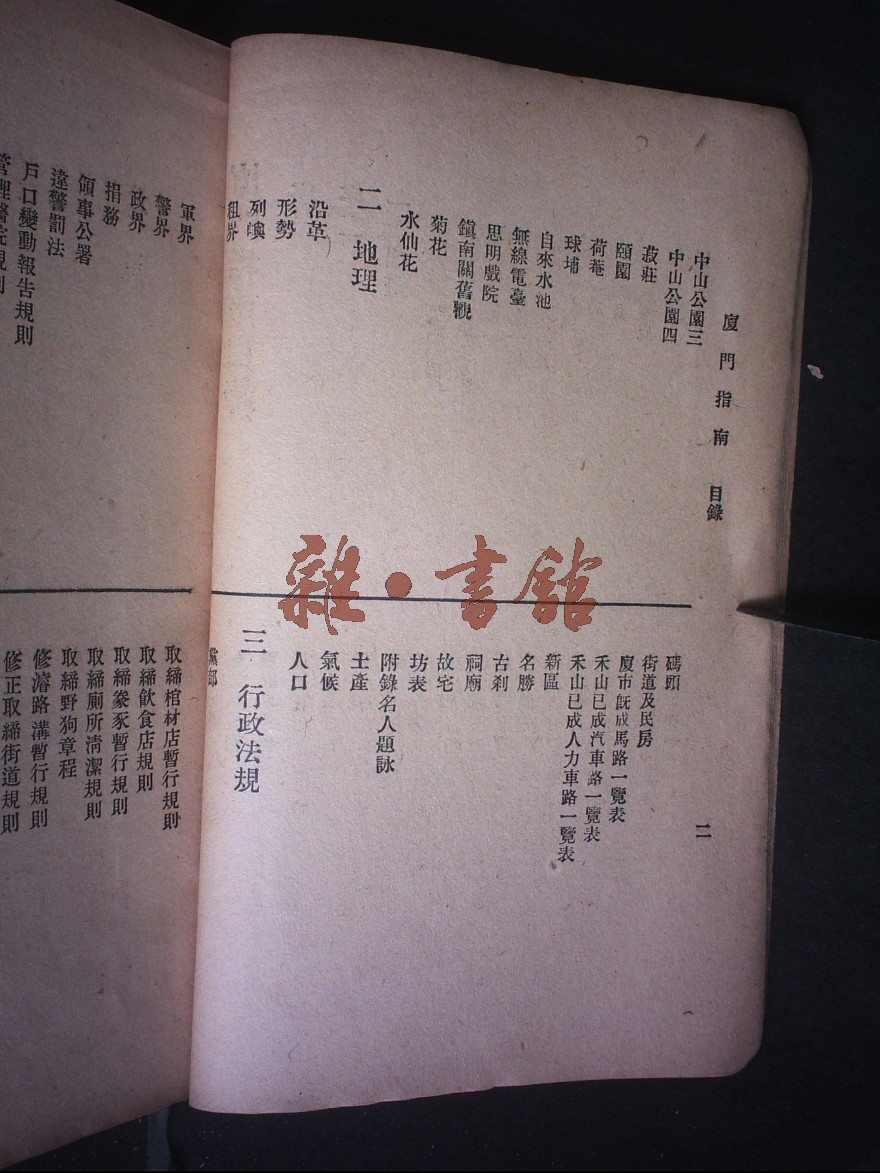 廈門指南 目錄
二
中山公園三
中山公園四
菽莊
頤園
荷菴
球埔
自來水池
無線電臺
思明戲院
鎮南關舊觀
菊花
水仙花
二 地理
沿革
形勢
列嶼
租界
碼頭
街道及民房
廈市旣成馬路一覽表
禾山已成汽車路一覽表
禾山已成人力車路一覽表
新區
名勝
古刹
祠廟
故宅
坊表
附錄名人題詠
土產
氣候
人口
三 行政法規
黨部
軍界
警界
政界
捐務
領事公署
違警罰法
戶口變動報告規則
管理醫院規則
取締棺材店暫行規則
取締飲食店規則
取締豢豕暫行規則
取締廁所清潔規則
取締野狗章程
修濬路溝暫行規則
修正取締街道規則
雜·書館